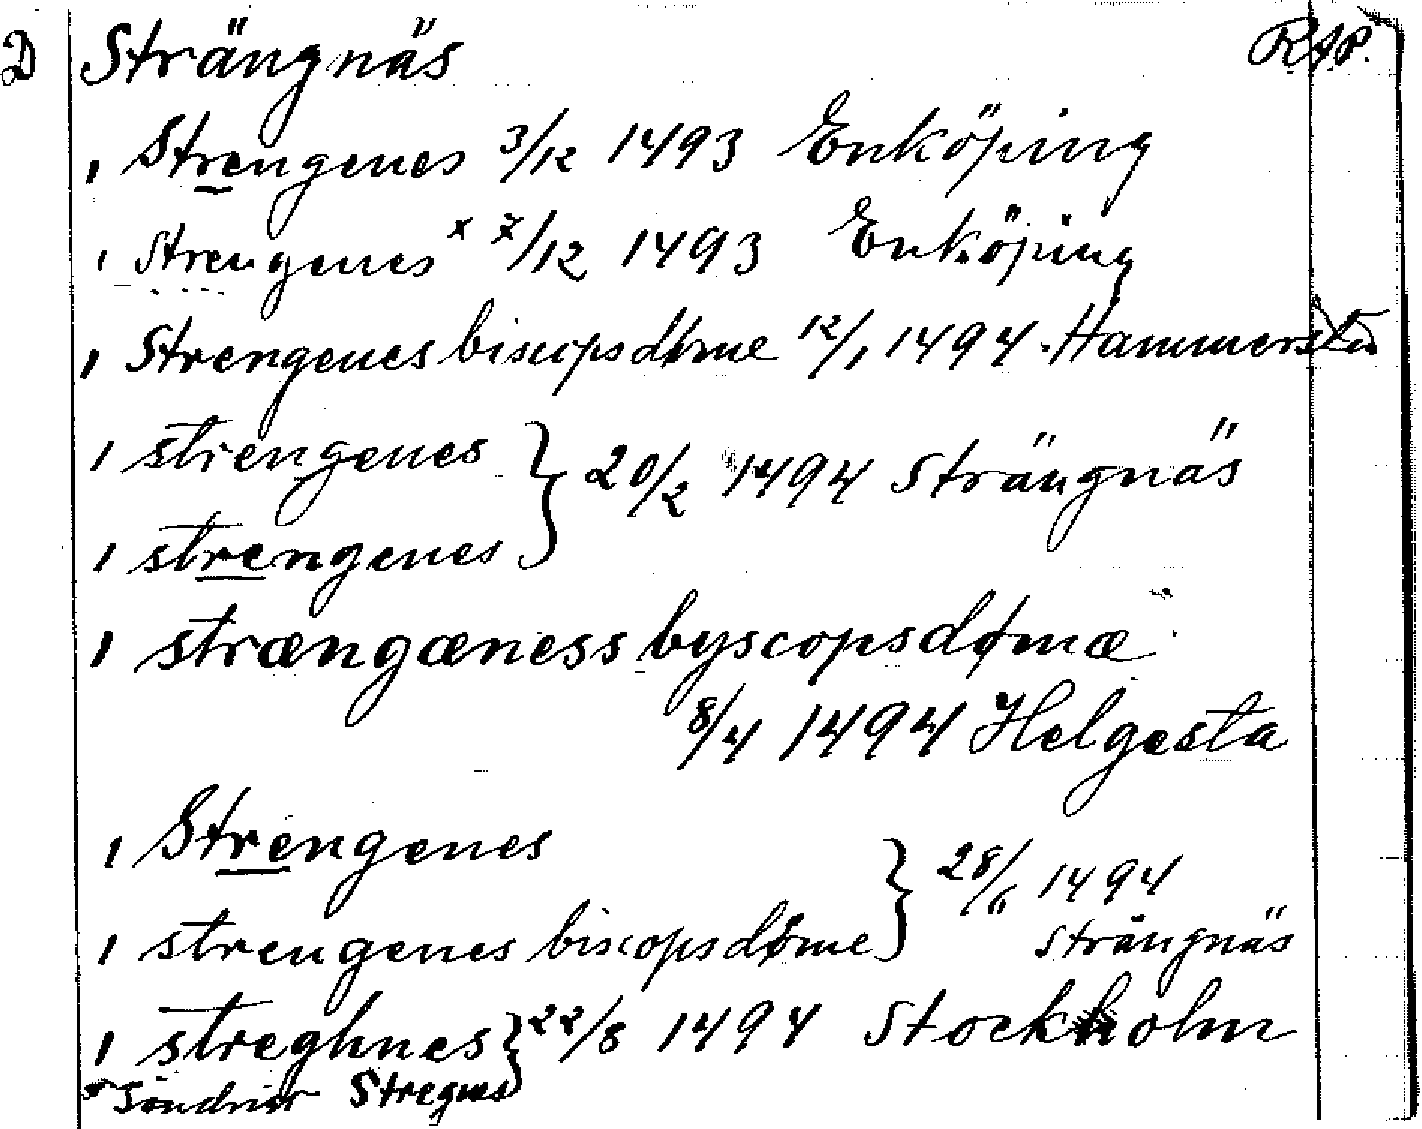 D Strängnäs RAP.
ı Strengenes 3/12 1493 Enköping
ı Strengenes x 7/12 1493 Enköping
ı Strengenes biscopsdøme 12/1 1494 Hammersta
ı strengenes } 20/2 1494 Strängnäs
ı strengenes
ı strængæness byscopsdømæ
8/4 1494 Helgesta
ı Strengenes } 28/6 1494
ı strengenes biscopsdøme Strängnäs
ı streghnes } 22/8 1494 Stockholm
Stregnes